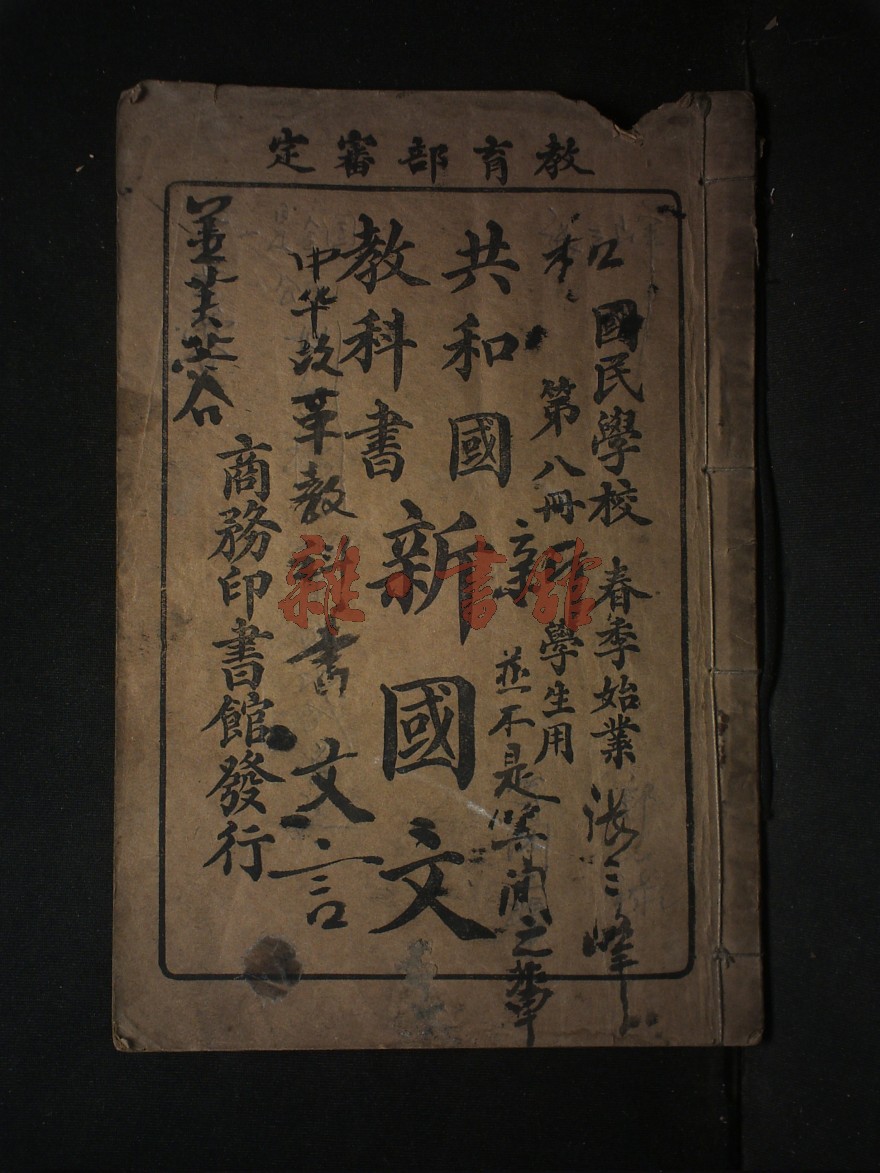 教育部審定
國民學校 春季始業 張三峰
第八冊 學生用
並不是等闲之輩
共和國
教科書 新國文
中华改革教科書 文言
商務印書館發行
雜·書館